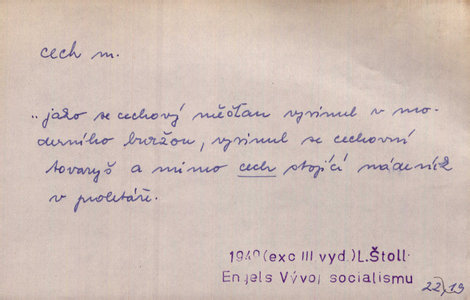 cech m.
„jako se cechový měšťan vyvinul v mo-
derního buržou, vyvinul se cechovní
tovaryš a mimo cech stojící nádeník
v proletáře.
1940 (exc III vyd.) L. Štoll
Engels Vývoj socialismu
22, 19